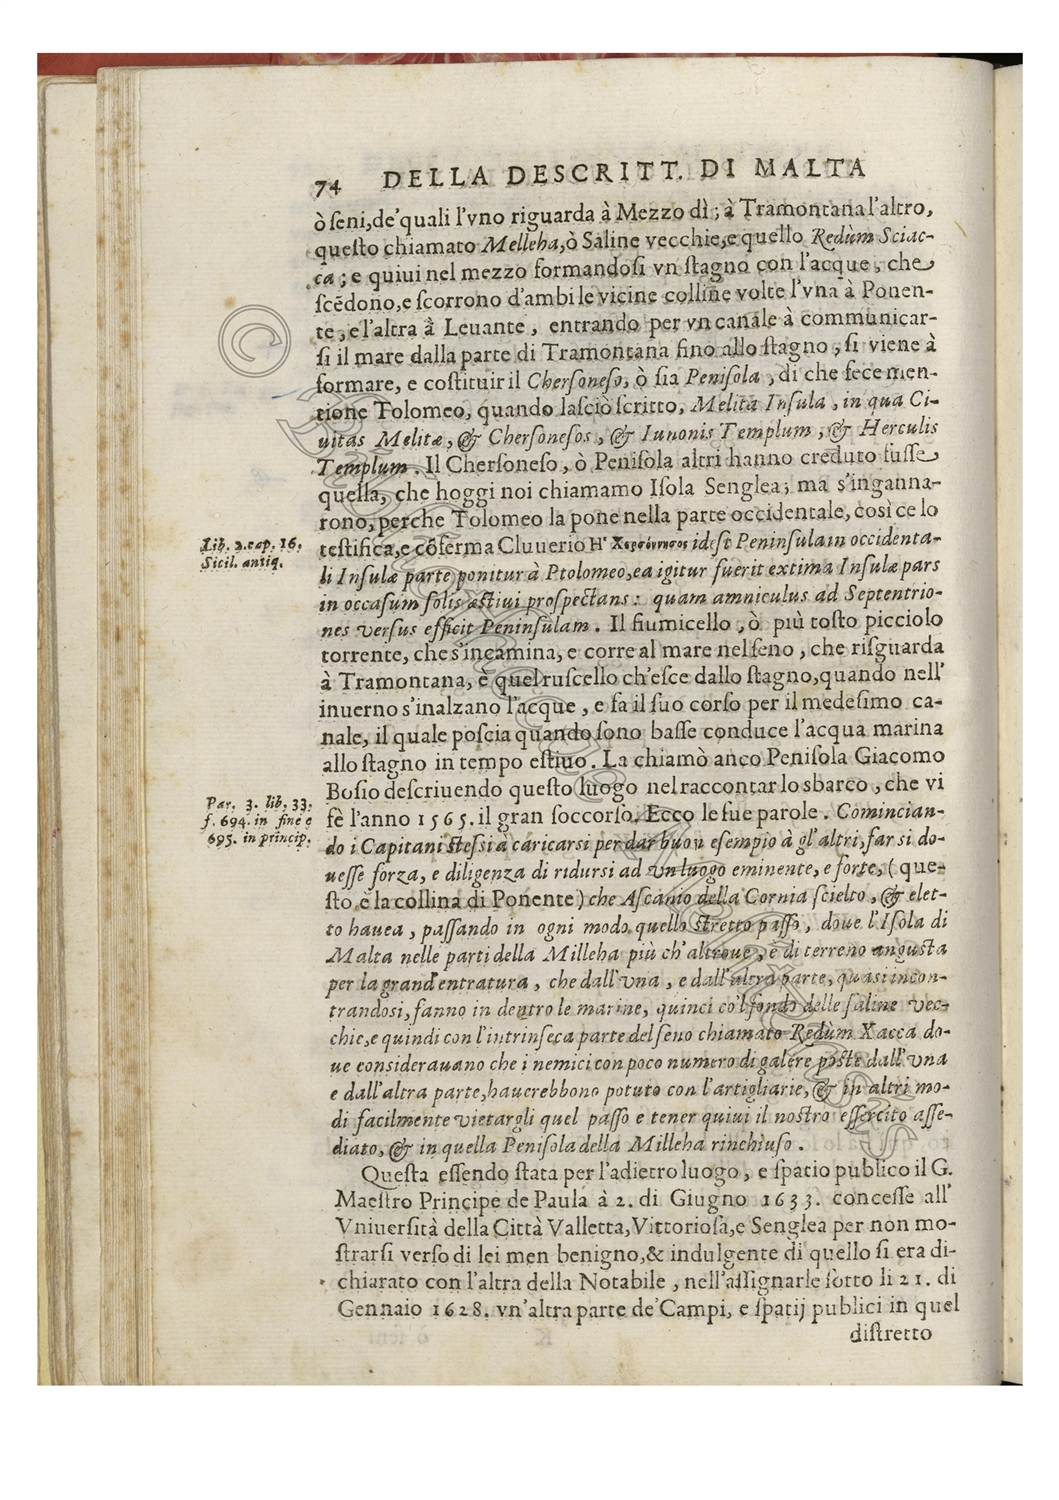 74 DELLA DESCRITT. DI MALTA
ò ſeni, de' quali l'vno riguarda à Mezzo dì; à Tramontana l'altro,
queſto chiamato Melleha, ò Saline vecchie, e quello Redùm Sciac-
ca; e quiui nel mezzo formandoſi vn ſtagno con l'acque, che
ſcēdono, e ſcorrono d'ambi le vicine colline volte l'vna à Ponen-
te, e l'altra à Leuante, entrando per vn canale à communicar-
ſi il mare dalla parte di Tramontana fino allo ſtagno, ſi viene à
formare, e coſtituir il Cherſoneſo, ò ſia Peniſola, di che fece men-
tione Tolomeo, quando laſciò ſcritto, Melita Inſula, in qua Ci-
uitas Melitæ, & Cherſoneſos, & Iunonis Templum, & Herculis
Templum. Il Cherſoneſo, ò Peniſola altri hanno creduto fuſſe
quella, che hoggi noi chiamamo Iſola Senglea; ma s'inganna-
rono, perche Tolomeo la pone nella parte occidentale, così ce lo
Lib. 2. cap. 16.
Sicil. antiq.
teſtifica, e cōferma Cluuerio Η' Χερσόνησος ideſt Peninſulam occidenta-
li Inſulæ parte ponitur à Ptolomeo, ea igitur fuerit extima Inſulæ pars
in occaſum ſolis æſtiui proſpectans: quam amniculus ad Septentrio-
nes verſus efficit Peninſulam. Il fiumicello, ò più toſto picciolo
torrente, che s'incamina, e corre al mare nel ſeno, che riſguarda
à Tramontana, è quel ruſcello ch'eſce dallo ſtagno, quando nell'
inuerno s'inalzano l'acque, e fa il ſuo corſo per il medeſimo ca-
nale, il quale poſcia quando ſono baſſe conduce l'acqua marina
allo ſtagno in tempo eſtiuo. La chiamò anco Peniſola Giacomo
Boſio deſcriuendo queſto luogo nel raccontar lo sbarco, che vi
Par. 3. lib. 33.
f. 694. in fine e
695. in princip.
fè l'anno 1565. il gran ſoccorſo. Ecco le ſue parole. Comincian-
do i Capitani ſteſsi à caricarsi per dar buon eſempio à gl'altri, far si do-
ueſſe forza, e diligenza di ridursi ad vn luogo eminente, e forte, (que-
ſto è la collina di Ponente) che Aſcanio della Cornia ſcielto, & elet-
to hauea, paſſando in ogni modo quello ſtretto paſſo, doue l'Iſola di
Malta nelle parti della Milleha più ch'altroue, è di terreno anguſta
per la grand'entratura, che dall'vna, e dall'altra parte, quasi incon-
trandosi, fanno in dentro le marine, quinci co'l fondo delle ſaline vec-
chie, e quindi con l'intrinſeca parte del ſeno chiamato Redùm Xacca do-
ue considerauano che i nemici con poco numero di galere poſte dall'vna
e dall'altra parte, hauerebbono potuto con l'artigliarie, & in altri mo-
di facilmente vietargli quel paſſo e tener quiui il noſtro eſſercito aſſe-
diato, & in quella Peniſola della Milleha rinchiuſo.
Queſta eſſendo ſtata per l'adietro luogo, e ſpatio publico il G.
Maeſtro Principe de Paula à 2. di Giugno 1633. conceſſe all'
Vniuerſità della Città Valletta, Vittorioſa, e Senglea per non mo-
ſtrarſi verſo di lei men benigno, & indulgente di quello ſi era di-
chiarato con l'altra della Notabile, nell'aſſignarle ſotto li 21. di
Gennaio 1628. vn'altra parte de' Campi, e ſpatij publici in quel
diſtretto